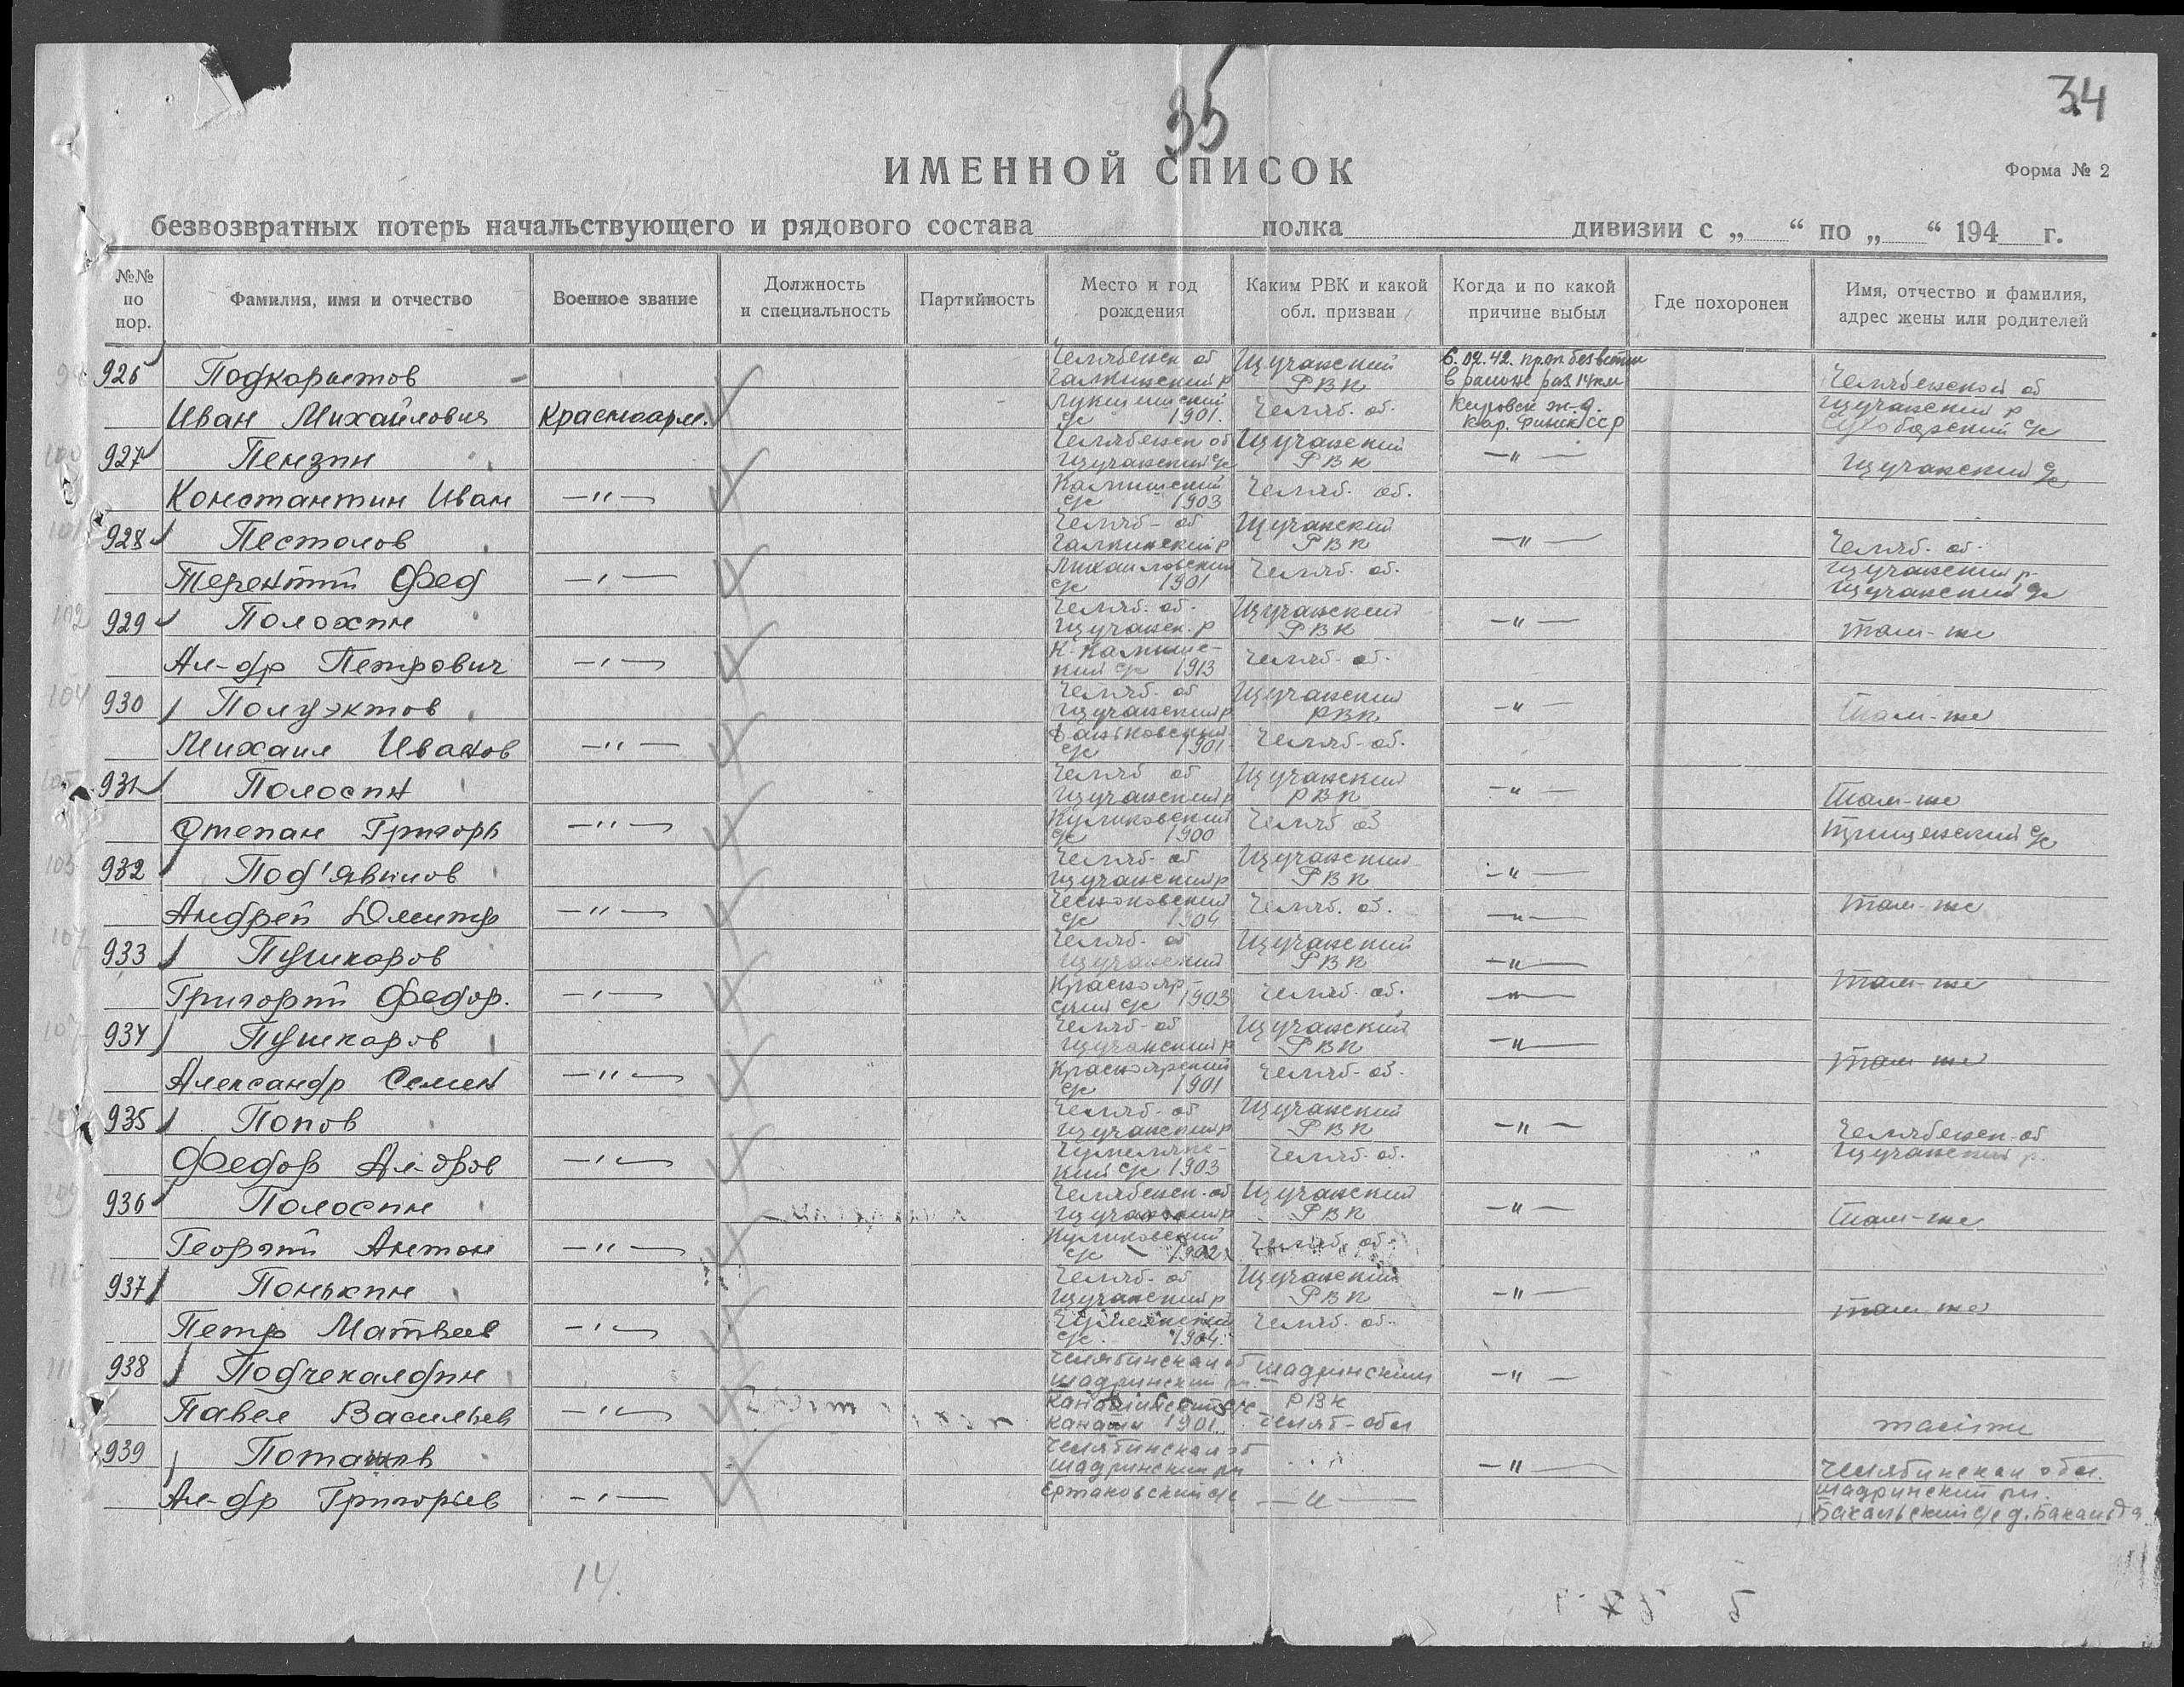 35
34
ИМЕННОЙ СПИСОК
Форма № 2
безвозвратных потерь начальствующего и рядового состава полка дивизии с „ “ по „ “ 194 г.
№№ по пор.
Фамилия, имя и отчество
Военное звание
Должность и специальность
Партийность
Место и год рождения
Каким РВК и какой обл. призван
Когда и по какой причине выбыл
Где похоронен
Имя, отчество и фамилия, адрес жены или родителей
926 Подкорытов Челябинск об Щучанский 6.02.42. проп без вести
Галкинский р РВК в районе раз 14 км Челябинской об
Иван Михайлович Красноарм. с/с 1901. Челяб. об. Кировск ж.д. Щучанский р
Кар. Финск ССР с/с
927 Пензин Челябинск об Щучанский —"—
Щучанский РВК Щучанский
Константин Иван —"— с/с 1903 Челяб. об.
928 Пестолов Челяб- об Щучанский —"—
Галкинский р РВК Челяб. об.
Терентий Фед —"— с/с 1901 Челяб. об. Щучанский р
Щучанский
929 Полохин Челяб. об. Щучанский —"—
Щучанск. р РВК там-же
Ал-др Петрович —"— кий с/с 1913 Челяб- об.
930 Полуэктов Челяб- об Щучанский —"—
Щучанский р РВК там-же
Михаил Иванов —"— с/с 1901 Челяб- об.
931 Полосин Челяб об Щучанский —"—
Щучанский р РВК там-же
Степан Григорь —"— Куликовский Челяб об
с/с 1900
932 Под'явилов Челяб- об Щучанский —"—
Щучанский р РВК
Андрей Дмитр —"— Чесноковский Челяб. об. —"— там-же
с/с 1904
933 Пушкаров Челяб- об Щучанский —"—
Щучанский РВК там-же
Григорий Федор. —"— Краснояр- Челяб- об. —"—
ский с/с 1903
934 Пушкаров Челяб- об Щучанский —"—
Щучанский р РВК там же
Александр Семен —"— Красноярский Челяб- об.
с/с 1901
935 Попов Челяб- об Щучанский —"—
Щучанский р РВК Челябинск-об
Федор Ал-дров —"— кий с/с 1903 Челяб- об. Щучанский р.
936 Полосин Челябинск-об Щучанский —"—
Щучанский р РВК там-же
Георгий Антон —"— Куликовский Челяб. об.
с/с 1902
937 Понькин Челяб- об Щучанский —"—
Щучанский р РВК там же
Петр Матвеев —"— с/с 1904. Челяб. об.
938 Подчекалдин Челябинская об Шадринский —"—
Шадринский РВК
Павел Васильев —"— 1901 Челяб- обл там же
939 Поташов Челябинская об —"—
Шадринский рн Челябинская обл.
Ал-др Григорьев —"— с/с —"— Шадринский рн.
Бакальский с/с д. Бакальда
14.